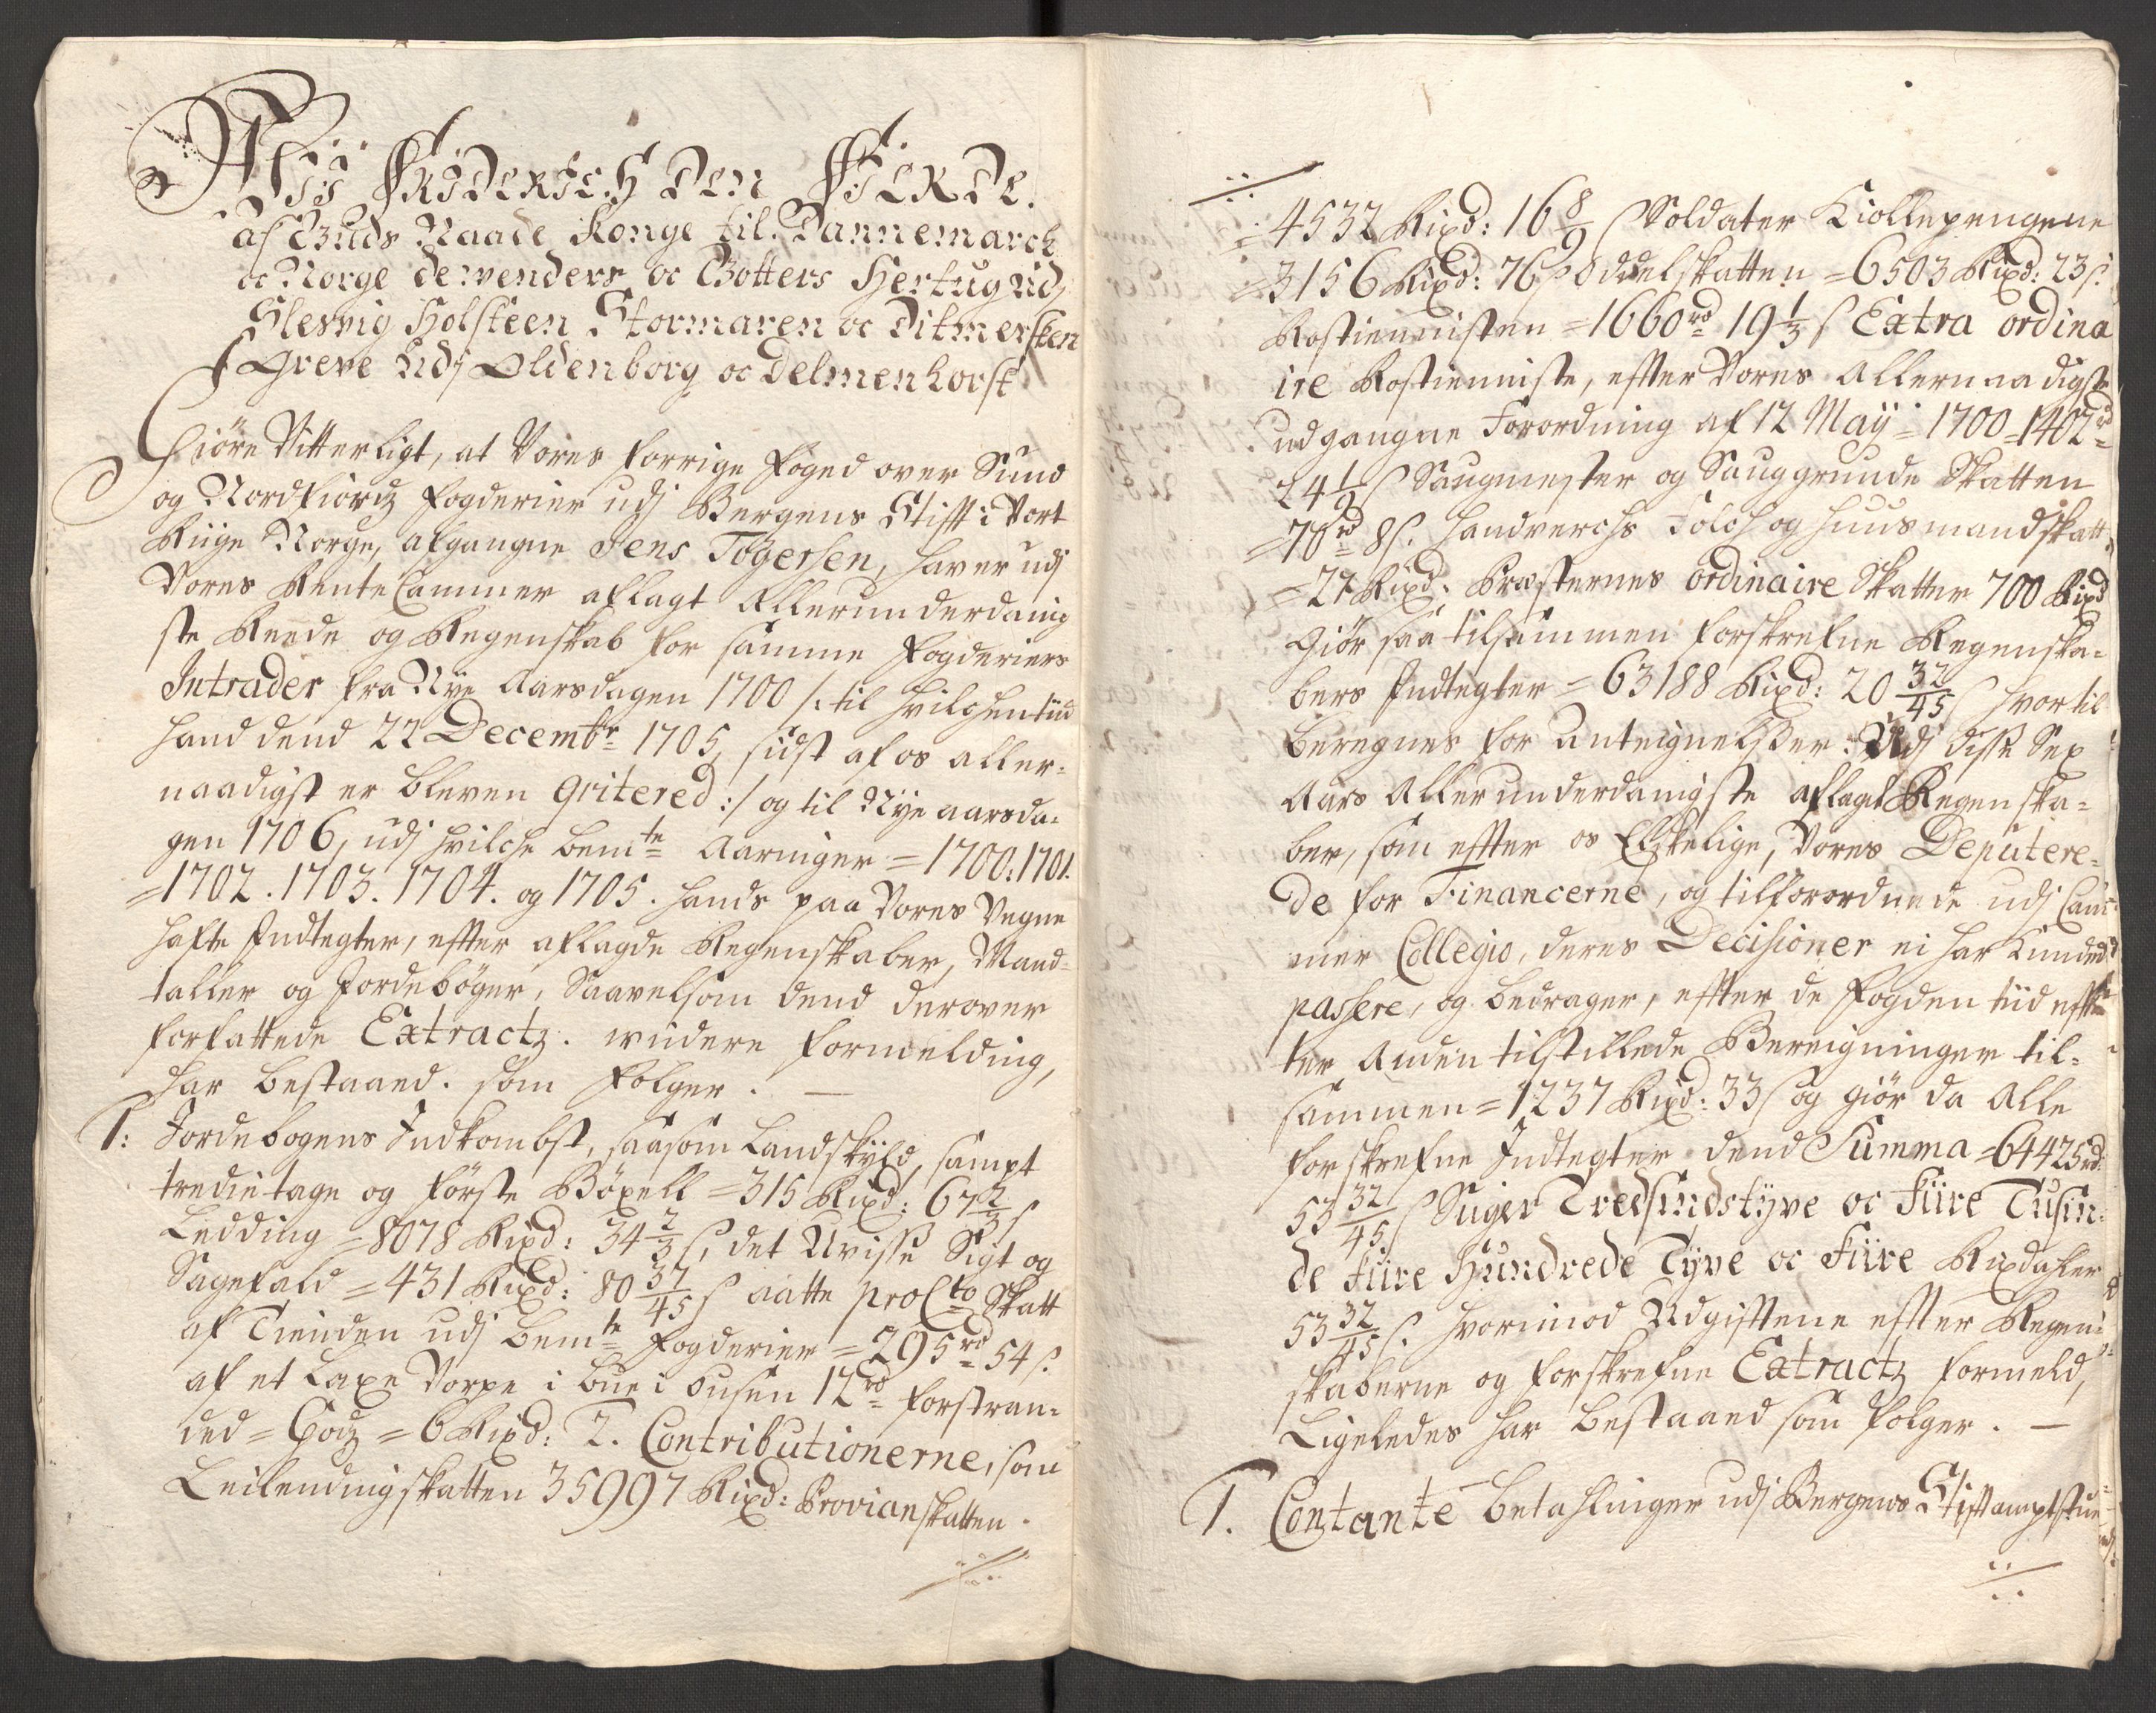 Wii Friderich den Fierde.
af Guds Naade Konge til Dannemarch
oc Norge de Wenders oc Gotters Hertug udj
Slesvig Holsteen Stormaren oc Ditmersken
Greve Udj Oldenborg oc Delmenhorst
Giöre Vitterligt, at Vores forrige foged over Sund
og Nordfiordz fogderier udj Bergens Stift i Vort
Riige Norge, afgangne Jens Tögersen, haver udj
Vores Rente Cammer aflagt Allerunderdanig
ste Reede og Regenskab for samme fogderiers
Intrader fra Nye Aarsdagen 1700 /: til hvilchen tiid
hand dend 22 Decembr 1705, sidst af os aller-
naadigst er bleven qviteret :/ og til Nye aarsda-
gen 1706, udj hvilche bemte Aaringer = 1700. 1701.
= 1702. 1703. 1704. og 1705. hands paa Vores Vegne
hafte Indtegter, efter aflagde Regenskaber, Mand-
taller og Jordebøger, Saavelsom dend derover
forfattede Extractz. widere formelding,
har bestaaed. som følger. —
1: Jordebogens Indkombst, saasom Landskyld, sampt
tredietage og förste Böxell = 315 Rixd: 67 2/3 s
Ledding = 8078 Rixd: 34 2/3 s, det Uvisse Sigt og
Sagefald = 431 Rixd: 80 37/45 s aatte pro Cto Skatt
af Tienden udj bemte fogderier = 295 rd 54 s.
af et Laxe Vorpe i bue i Ousen 12 rd forstran-
ded = Godz = 6 Rixd: 2. Contributionerne, som
Leilendingskatten 35997 Rixd: Provianskatten.
= 4532 Rixd: 16 8/9 s Soldater Kiollepengene
= 3156 Rixd: 76 s Oddelskatten = 6503 Rixd: 23 s.
Rostienisten = 1660 rd 19 1/3 s Extra ordina
ire Rostienniste, efter Vores Allernaadigste
udgangne Forordning af 12 Maÿ = 1700 = 1402 rd
24 1/2 s Saugmester og Sauggrunde Skatten
= 70 rd 8 s. Handverchs Folch og huusmandskatt.
= 27 Rixd: Præsternes ordinaire Skatter 700 Rixd
Giör saa tilsammen forskrefne Regenska-
bers Indtegter = 63188 Rixd: 20 32/45 s hvortil
beregnes for Anteignelsser: Udj disse Sex
Aars Allerunderdanigste aflagt Regenska-
ber, som efter os Elskelige, Vores Deputere-
de for Financerne, og tilforordnede udj Cam-
mer Collegio, deres Decisioner ei har kunded
passere, og bedrager, efter de fogden tiid efter
ter Anden tilstillede Bereigninger til-
sammen = 1237 Rixd: 33 s og giör da Alle
forskrefne Indtegter dend Summa = 64425 rd.
53 32/45 s Siger Tredsindstÿve oc Fiire Tusin-
de Fiire Hundrede Tÿve oc Fiire Rixdahler
53 32/45 s. hvorimod Udgifterne efter Regen-
skaberne og forskrefne Extractz formeld,
Ligeledes har bestaaed som følger. —
1. Contante betahlinger udj Bergens Stiftamptstue